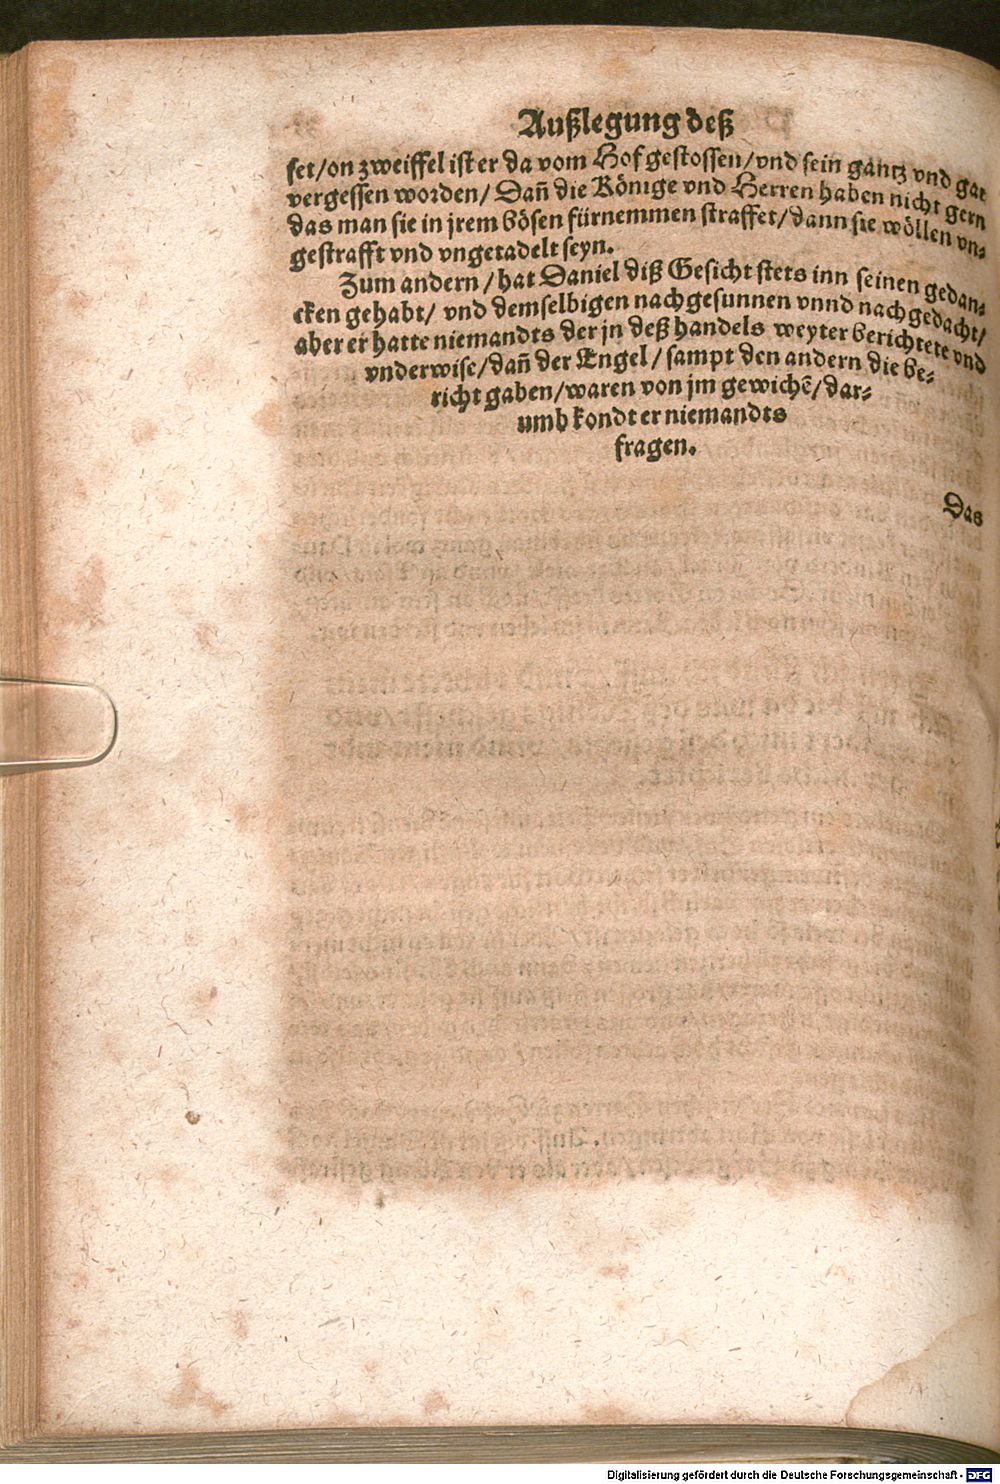 Außlegung deß
set/on zweiffel ist er da vom Hof gestossen/vnd sein gantz vnd gar
vergessen worden/ Dañ die Könige vnd Herren haben nicht gern
das man sie in jrem bösen fürnemmen straffet/dann sie wöllen vn-
gestrafft vnd vngetadelt seyn.
Zum andern/hat Daniel diß Gesicht stets inn seinen gedan-
cken gehabt/ vnd demselbigen nachgesunnen vnnd nachgedacht/
aber er hatte niemandts der jn deß handels weyter berichtete vnd
vnderwise/dañ der Engel/ sampt den andern die be-
richt gaben/waren von jm gewichẽ/dar-
umb kondt er niemandts
fragen.
Das
Digitalisierung gefördert durch die Deutsche Forschungsgemeinschaft - DFG